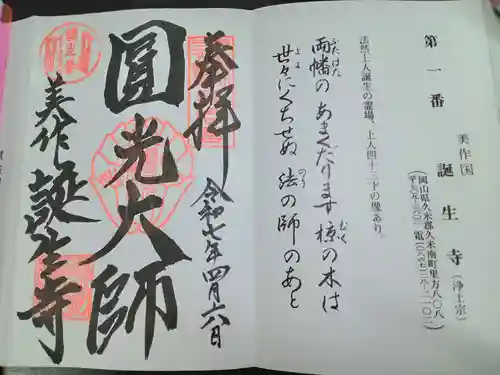 第一番
美作国
誕生寺(浄土宗)
岡山県久米郡久米南町里方八〇八
法然上人誕生の霊場、上人四十三才の像あり。
両幡の あまくだります 椋の木は
ふたはた
むく
世々にくちせぬ 法の師のあと
よよ
のり
奉拝
令和七年四月六日
圓光大師
美作 誕生寺